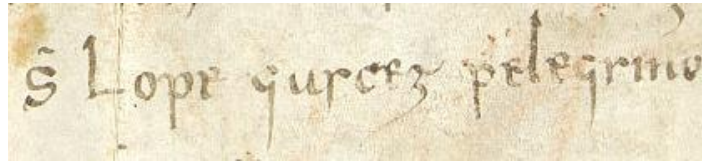 S̃ Lope garcez pelegrino